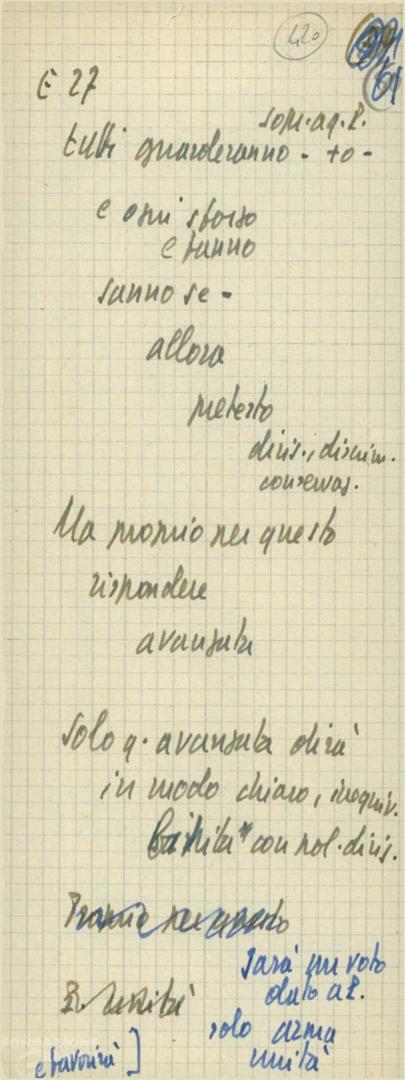 420
61
E 27
sopr. aq. P.
tutti guarderanno - to -
e ogni sforzo
e fanno
sanno se -
allora
pretesto
divis., discrim.
conservaz.
Ma proprio per questo
rispondere
avanzata
Solo q. avanzata dirà
in modo chiaro, inequiv.
con pol. divis.
Proprio per questo
E unità
Sarà un voto
dato a P.
solo arma
unità
e favorirà ]